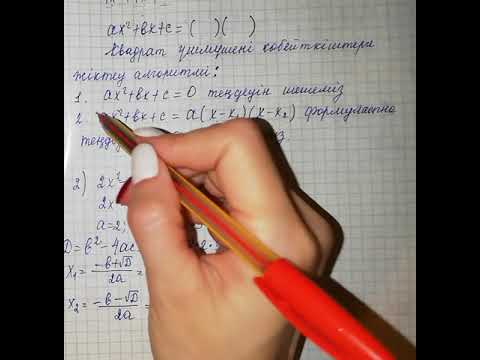 ax²+bx+c=( )( )
Квадрат үшмүшені көбейткіштерге
жіктеу алгоритмі:
1. ax²+bx+c=0 теңдеуін шешеміз
2. ax²+bx+c=a(x-x₁)(x-x₂) формуласына
2) 2x²
2x
a=2;
D=b²-4ac
x₁= -b+√D / 2a =
x₂= -b-√D / 2a =